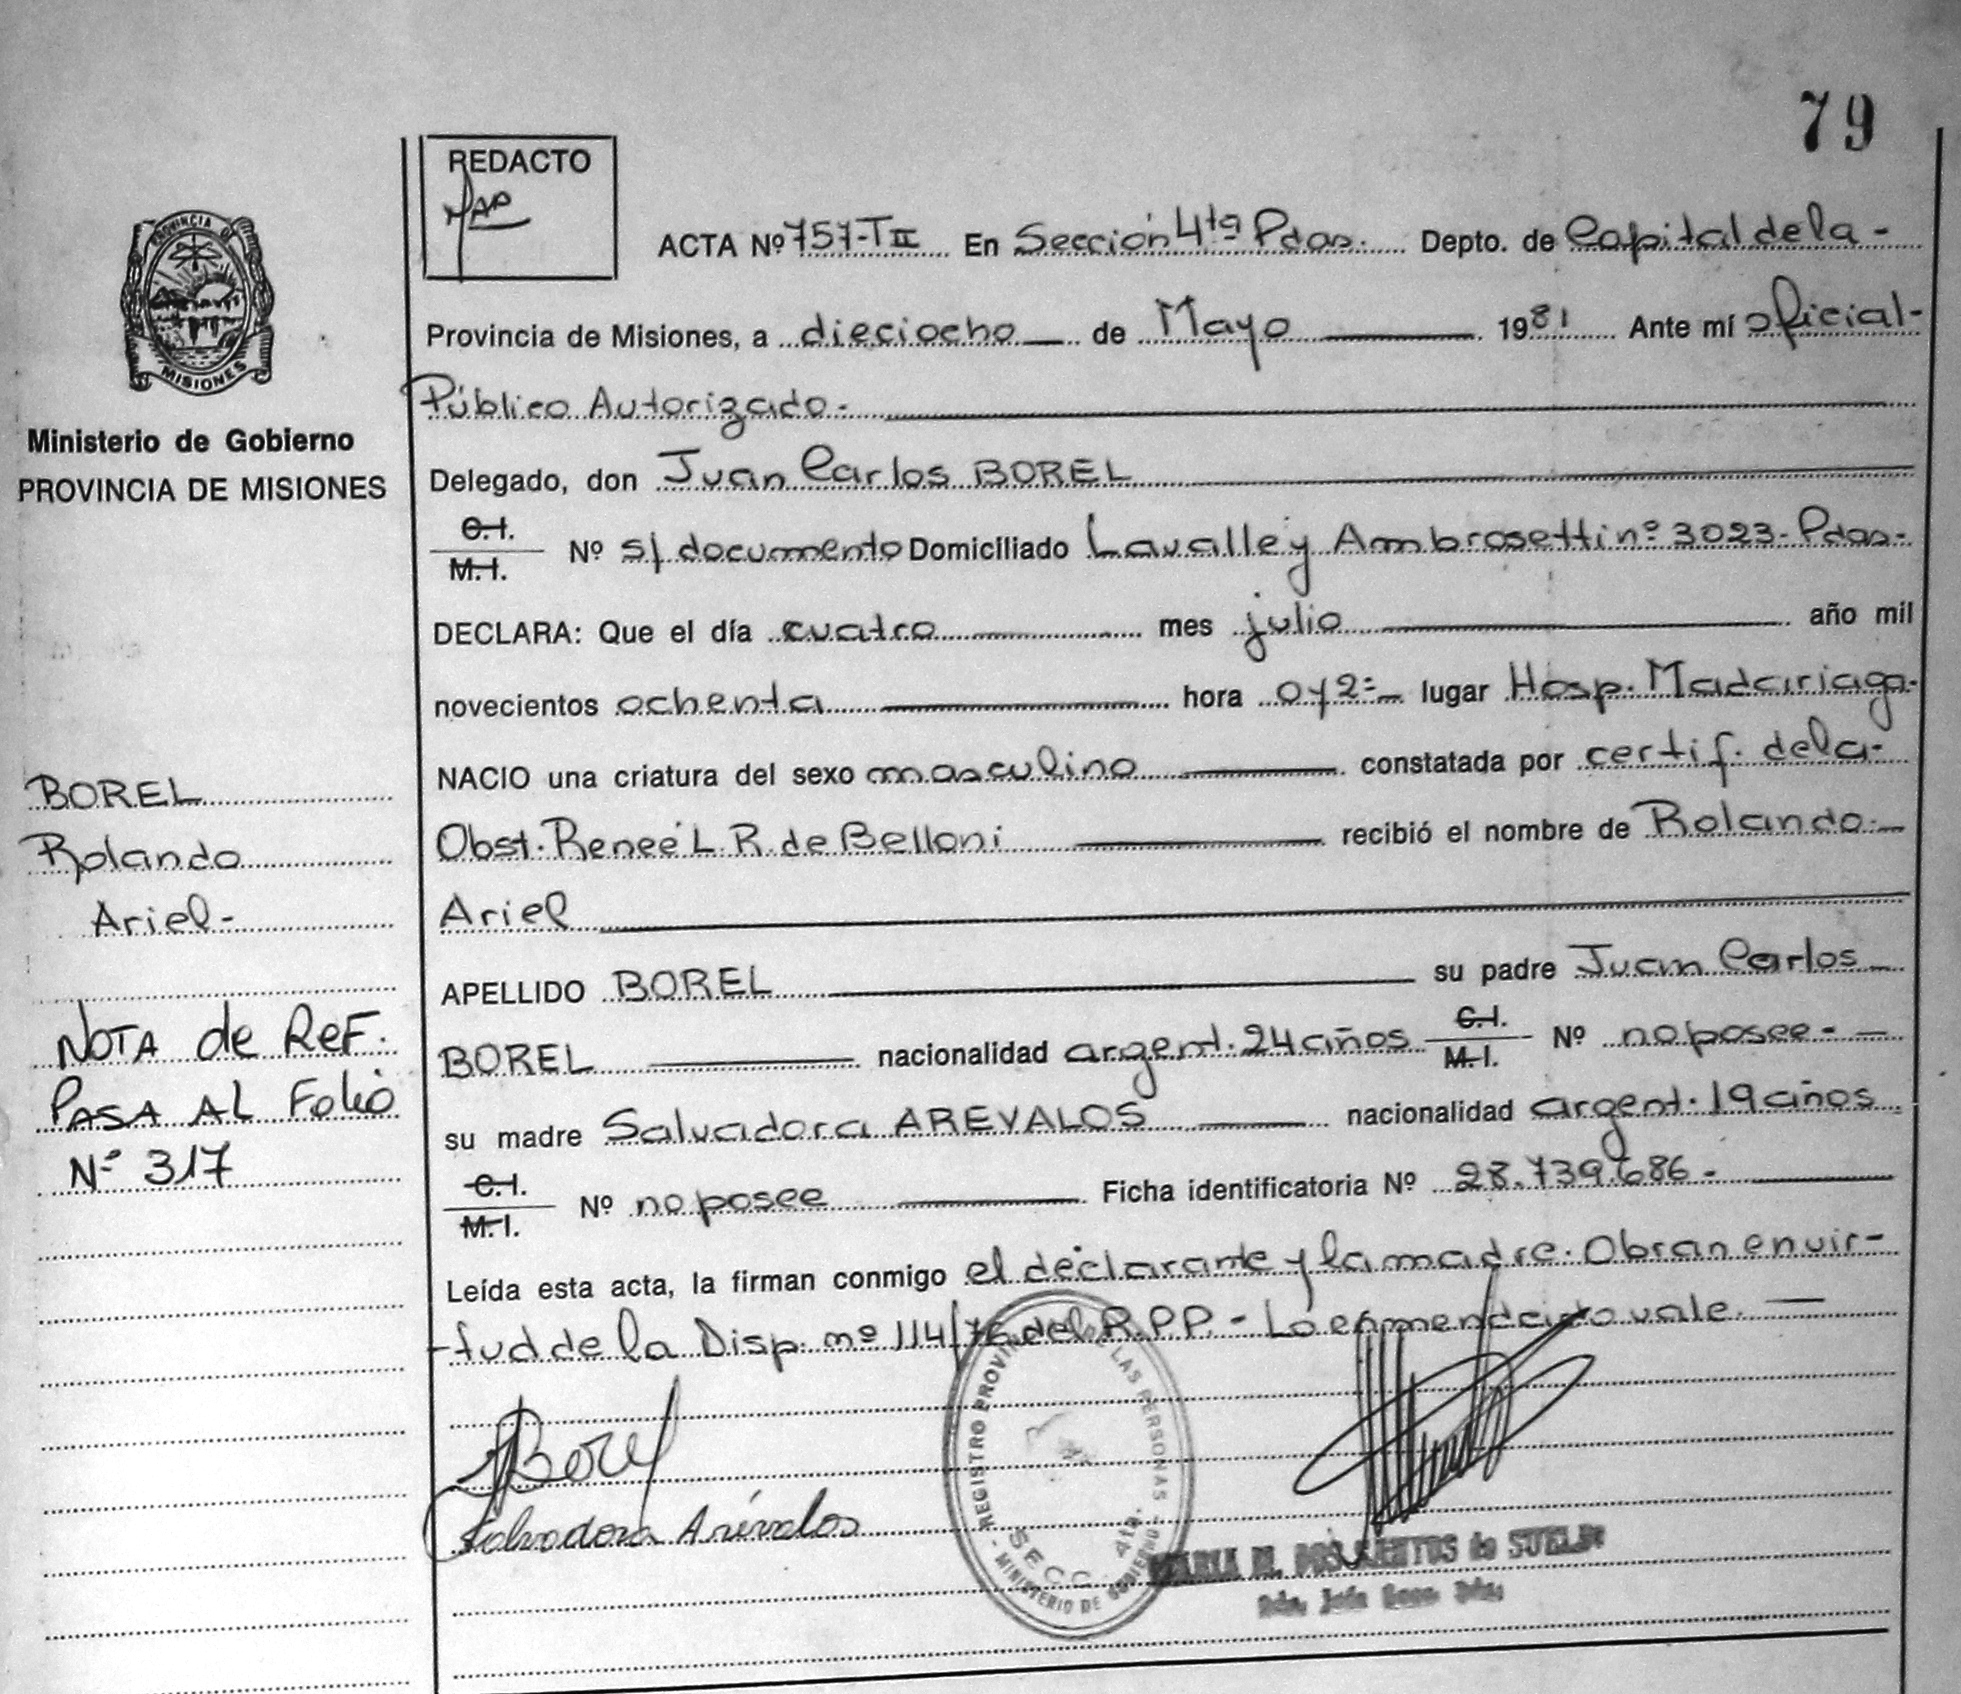 79
REDACTO
PROVINCIA DE
MISIONES
ACTA Nº 757-T II En Sección 4ta Pdas. Depto. de Capital de la -
Provincia de Misiones, a dieciocho de Mayo 1981 Ante mí oficial-
Público Autorizado-
Ministerio de Gobierno
PROVINCIA DE MISIONES
Delegado, don Juan Carlos BOREL
C.I.
M.I. Nº s/documento Domiciliado Lavalle y Ambrosetti nº 3023-Pdas-
DECLARA: Que el día cuatro mes julio año mil
novecientos ochenta hora 0y2=- lugar Hosp. Madariaga-
NACIO una criatura del sexo masculino constatada por certif. de la-
Obst. Reneé L. R. de Belloni recibió el nombre de Rolando-
Ariel
APELLIDO BOREL su padre Juan Carlos
BOREL nacionalidad argent. 24 años C.I.
M.I. Nº no posee-
su madre Salvadora AREVALOS nacionalidad argent. 19 años
C.I.
M.I. Nº no posee Ficha identificatoria Nº 28.739.686-
Leída esta acta, la firman conmigo el declarante y la madre. Obran en vir-
-tud de la Disp. nº 114/76 del R.P.P. - Lo enmendado vale.
BOREL
Rolando
Ariel-
NOTA de ReF.
PASA AL Folio
Nº 317
Borel
Salvadora Arévalos
REGISTRO PROVINCIAL DE LAS PERSONAS
- MINISTERIO DE GOBIERNO -
SECC. 4ta.
MARIA M. DOS SANTOS de SUELDO